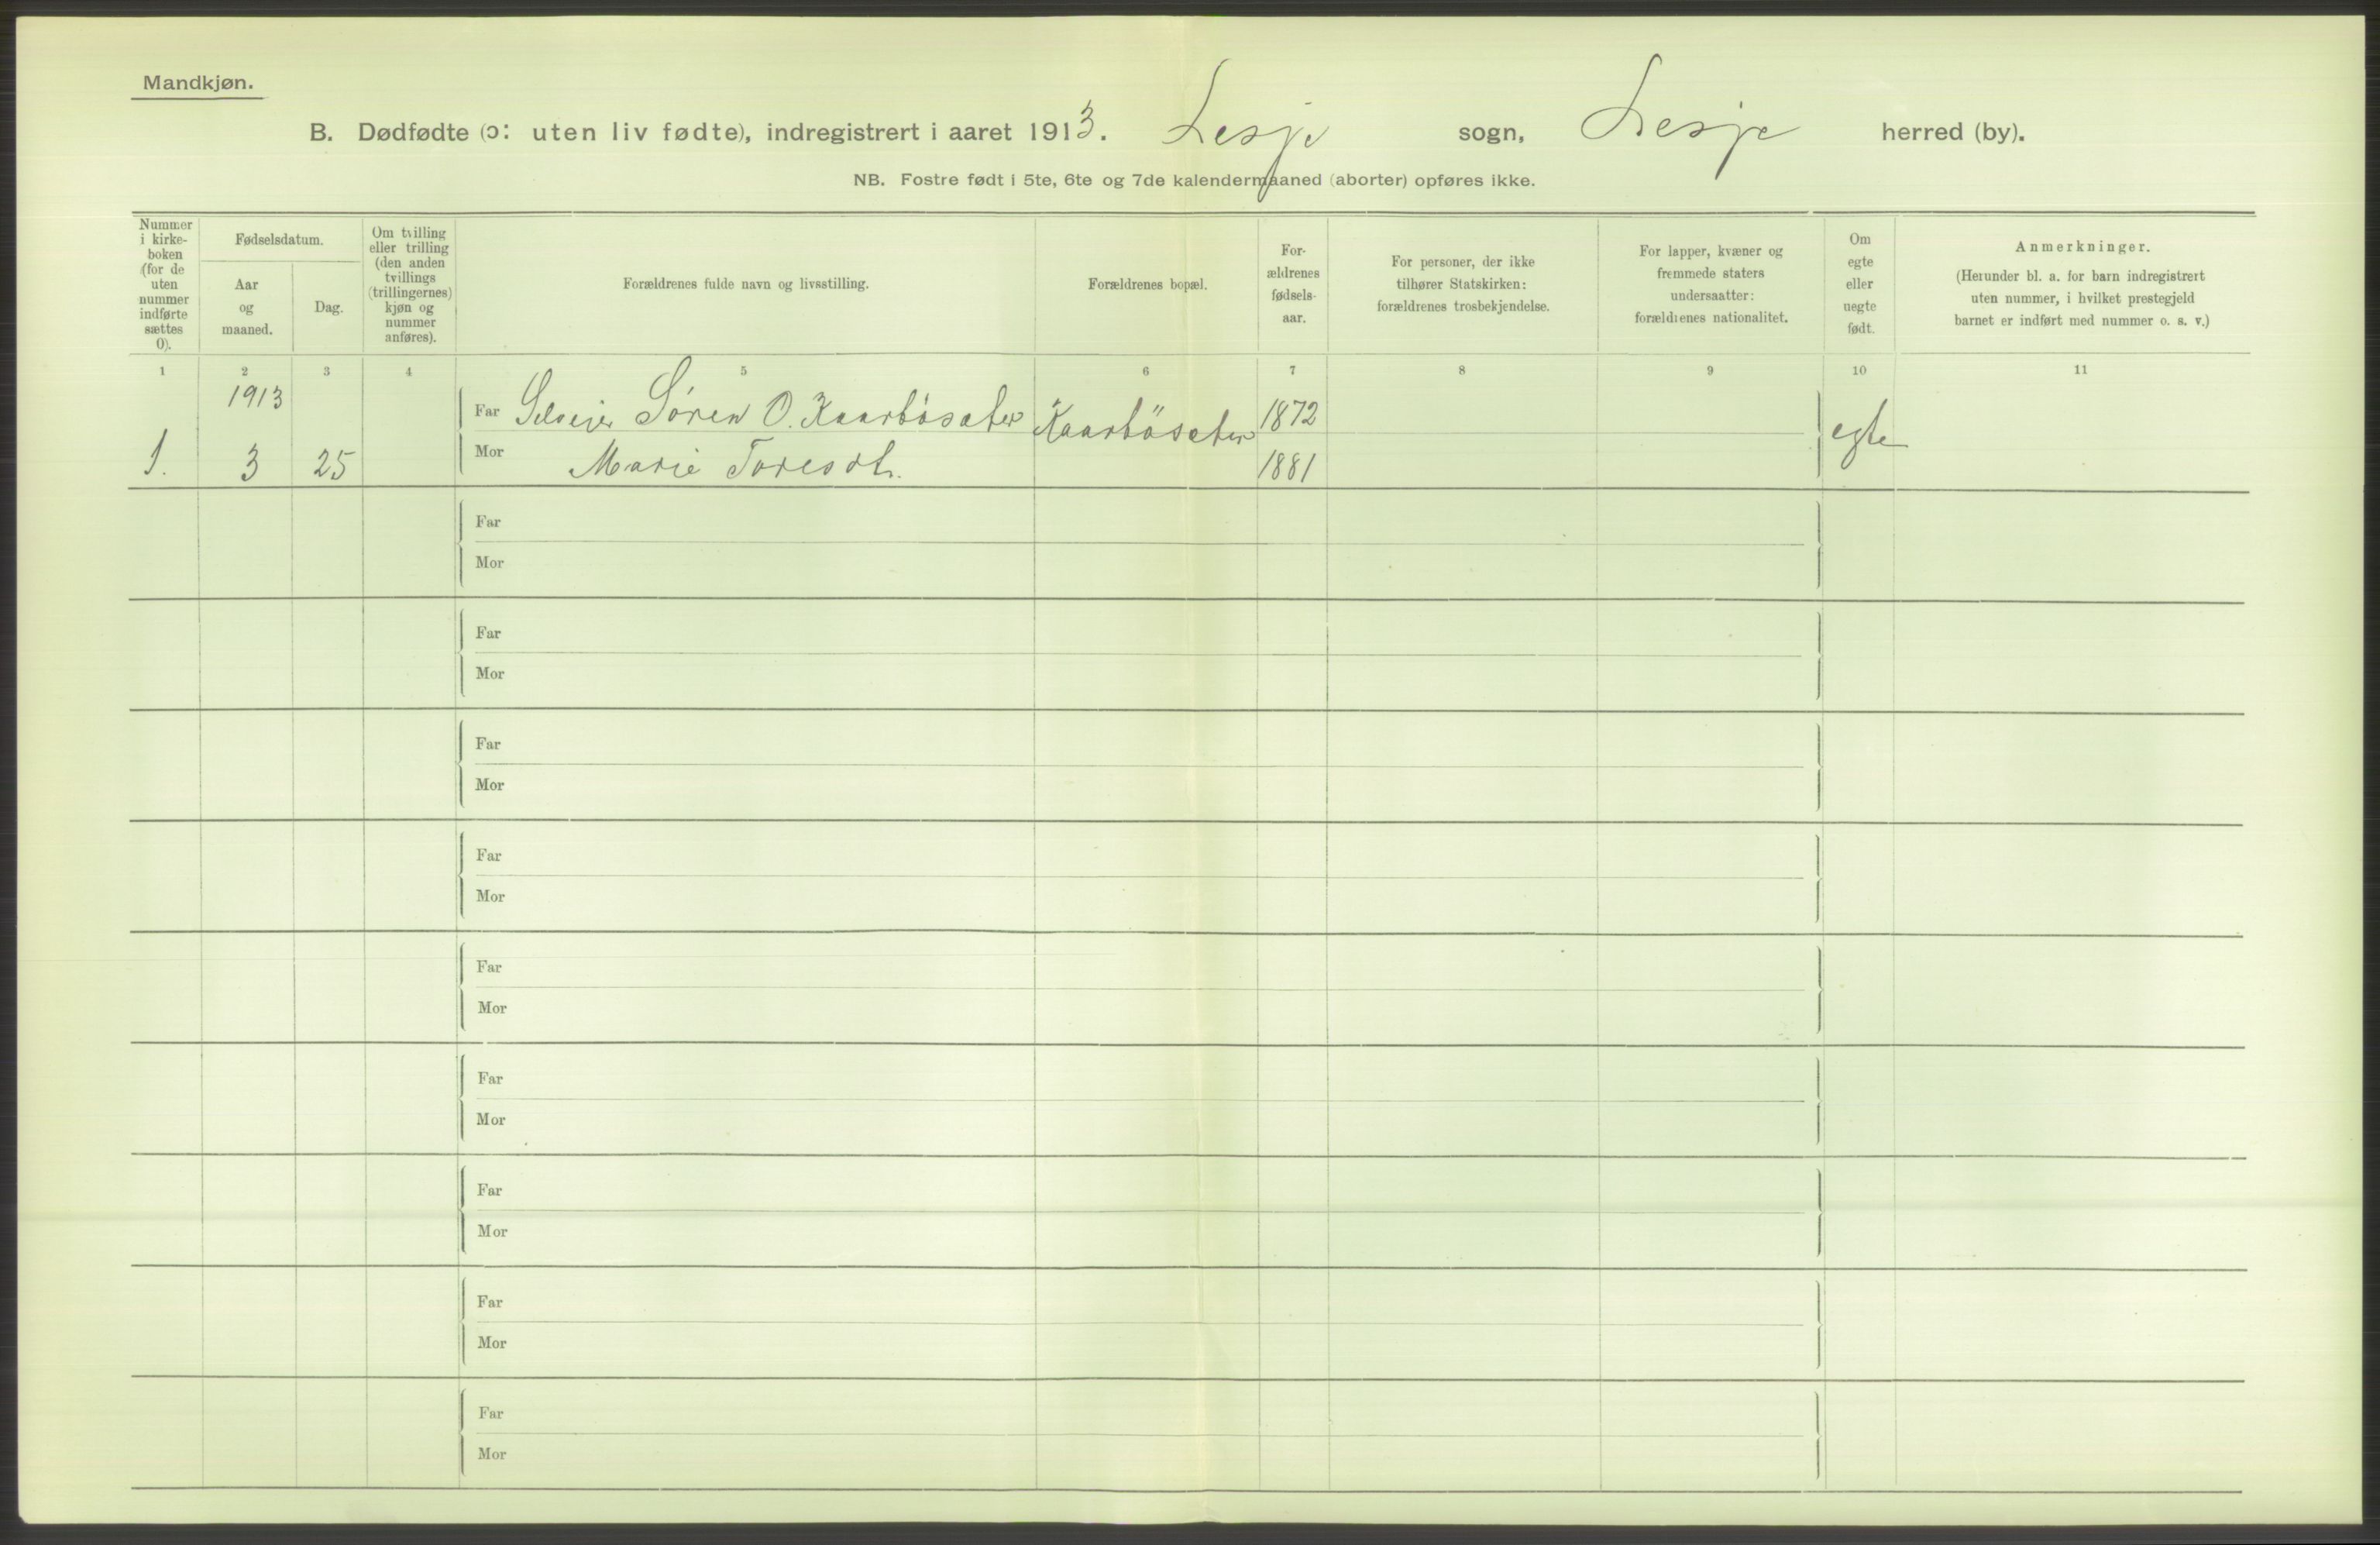 Mandkjøn.
B. Dødfødte (ɔ: uten liv fødte), indregistrert i aaret 1913. Lesje sogn, Lesje herred (by).
NB. Fostre født i 5te, 6te og 7de kalendermaaned (aborter) opføres ikke.
Nummer
i kirke-
boken
(for de
uten
nummer
indførte
sættes
0).
Fødselsdatum.
Aar
og
maaned.
Dag.
Om tvilling
eller trilling
(den anden
tvillings
(trillingernes)
kjøn og
nummer
anføres).
Forældrenes fulde navn og livsstilling.
Forældrenes bopæl.
For-
ældrenes
fødsels-
aar.
For personer, der ikke
tilhører Statskirken:
forældrenes trosbekjendelse.
For lapper, kvæner og
fremmede staters
undersaatter:
forældrenes nationalitet.
Om
egte
eller
uegte
født.
Anmerkninger.
(Herunder bl. a. for barn indregistrert
uten nummer, i hvilket prestegjeld
barnet er indført med nummer o. s. v.)
1 2 3 4 5 6 7 8 9 10 11
1913
Far Selveier Søren O. Kaarbøsæter Kaarbösæter 1872 egte
1. 3 25 Mor Marie Toresdt. 1881
Far
Mor
Far
Mor
Far
Mor
Far
Mor
Far
Mor
Far
Mor
Far
Mor
Far
Mor
Far
Mor